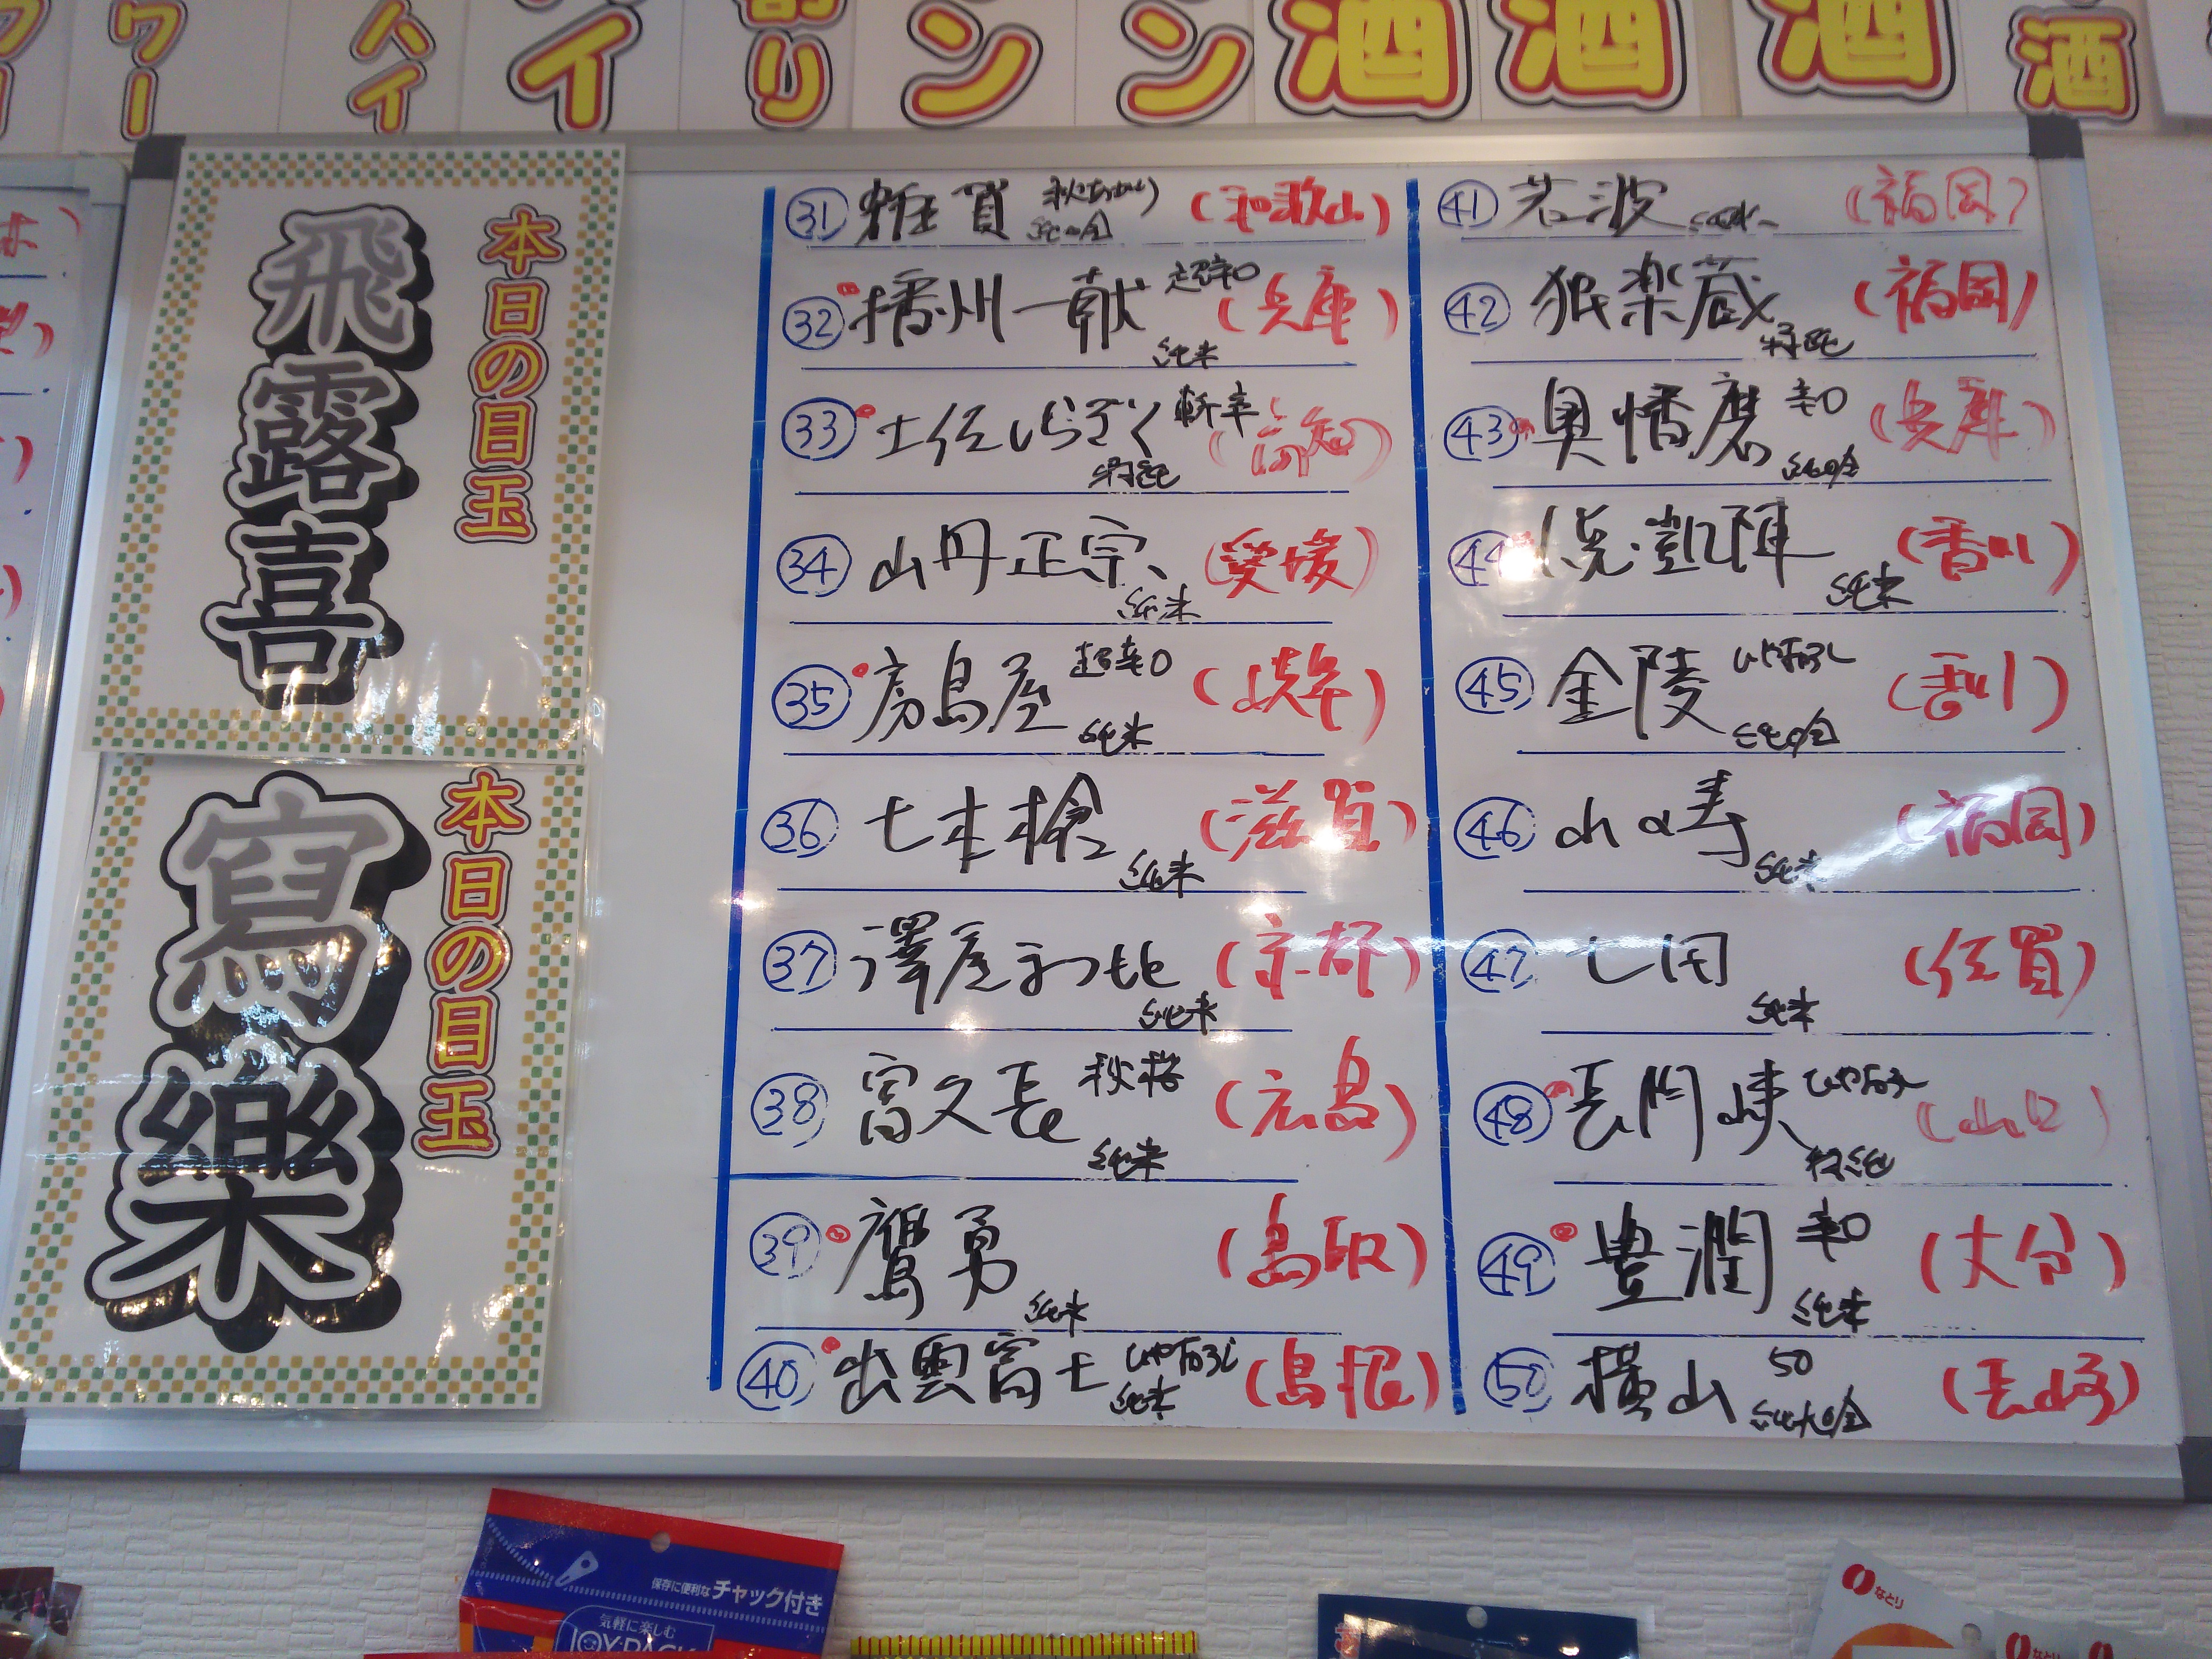 ワー
ハイ
イ
割り
ン
ン
酒
酒
酒
酒
本日の目玉
飛露喜
本日の目玉
寫樂
㉛ 雑賀 秋あがり 純吟 (和歌山)
㉜ 播州一献 超辛口 純米 (兵庫)
㉝ 土佐しらぎく 斬辛 特純 (高知)
㉞ 山丹正宗 純米 (愛媛)
㉟ 房島屋 超辛口 純米 (岐阜)
㊱ 七本槍 純米 (滋賀)
㊲ 澤屋まつもと 純米 (京都)
㊳ 富久長 秋桜 純米 (広島)
㊴ 鷹勇 純米 (鳥取)
㊵ 出雲富士 ひやおろし 純米 (島根)
㊶ 若波 純米 (福岡)
㊷ 独楽蔵 特純 (福岡)
㊸ 奥播磨 辛口 純吟 (兵庫)
㊹ 悦凱陣 純米 (香川)
㊺ 金陵 ひやおろし 純吟 (香川)
㊻ 山の寿 純米 (福岡)
㊼ 七田 純米 (佐賀)
㊽ 長門峡 ひやおろし 特純 (山口)
㊾ 豊潤 辛口 純米 (大分)
㊿ 横山 50 純大吟 (長崎)
保存に便利なチャック付き
気軽に楽しむ
JOY PACK
なとり
なとり